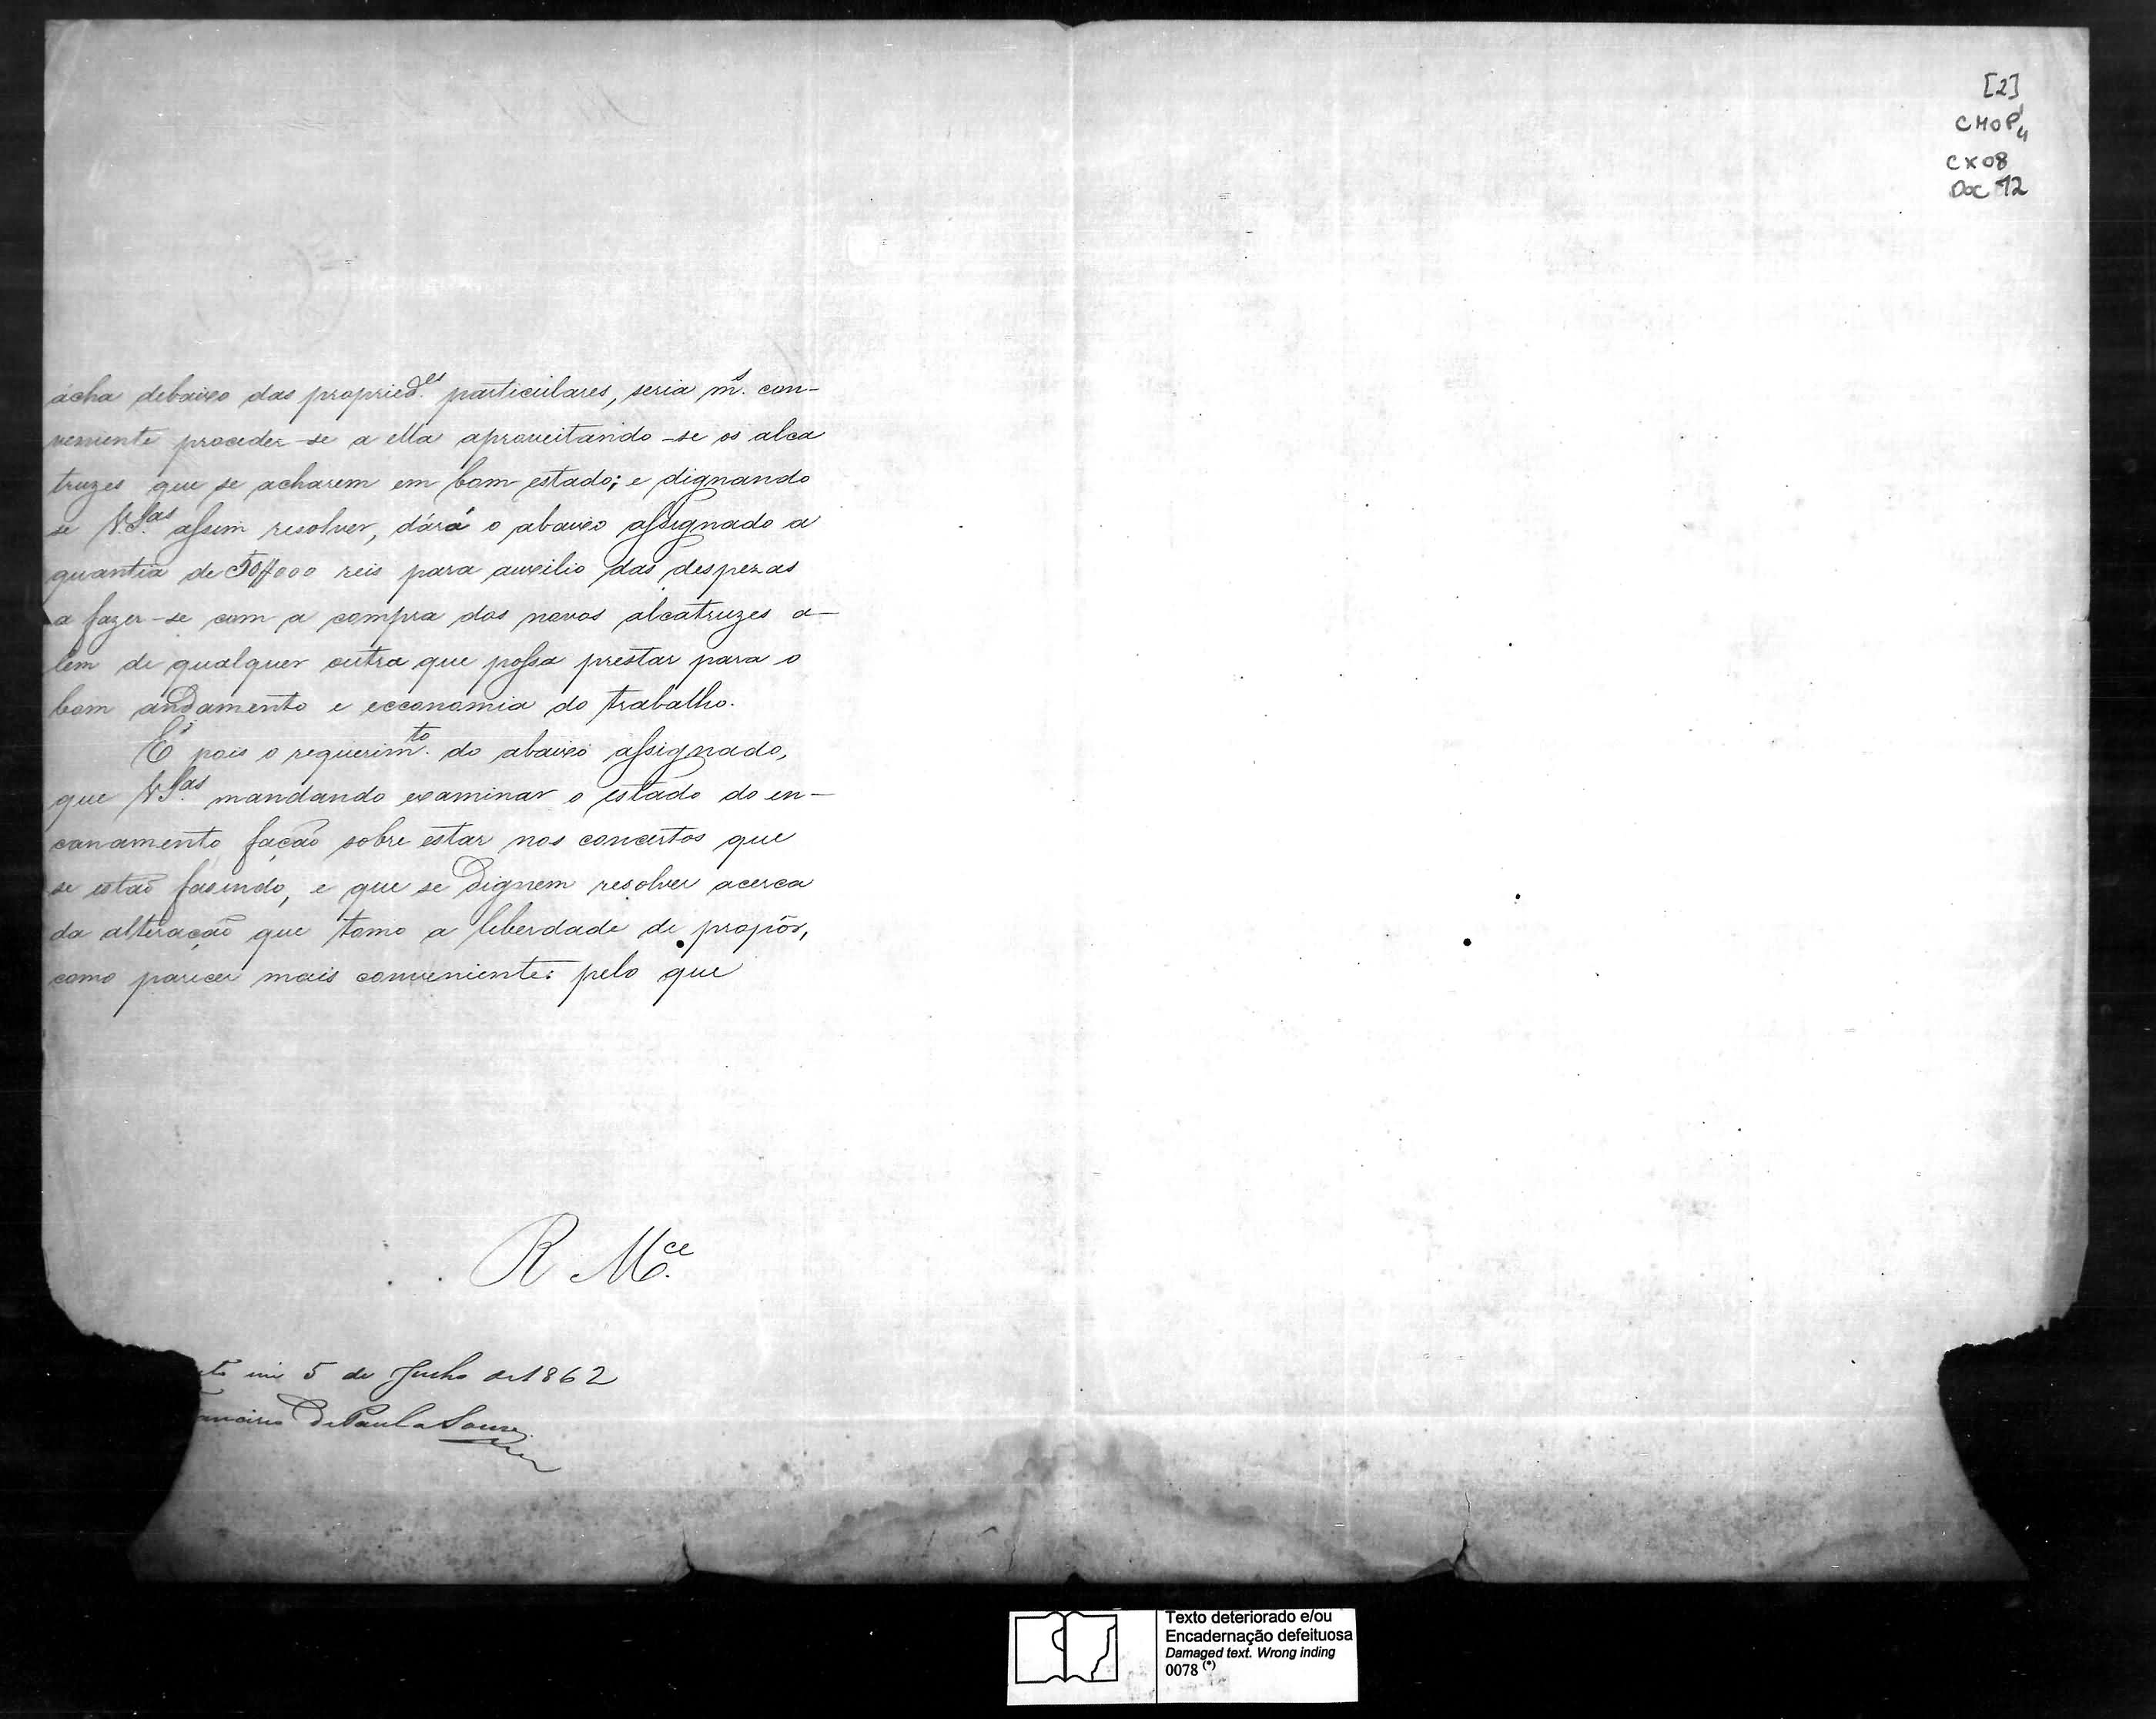 acha debaixo das propried.es particulares, seria m.s con-
veniente proceder-se a ella aproveitando-se os alca
truzes que se acharem em bom estado; e dignando
se V.Sas assim resolver, dárá o abaixo assignado a
quantia de 50#000 reis para auxilio das despezas
a fazer-se com a compra dos novos alcatruzes a-
lem de qualquer outra que possa prestar para o
bom andamento e ecconomia do trabalho.
É pois o requerim.to do abaixo assignado,
que V.Sas mandando examinar o estado do en-
canamento fação sobre estar nos concertos que
se estão fasendo, e que se Dignem resolver acerca
da alteração que tomo a liberdade de propôr,
como parecer mais conveniente: pelo que
R. M.ce
em 5 de Junho de 1862
De Paula Souza
[2]
CMOP
CX 08
DOC 12
Texto deteriorado e/ou
Encadernação defeituosa
Damaged text. Wrong inding
0078 (*)